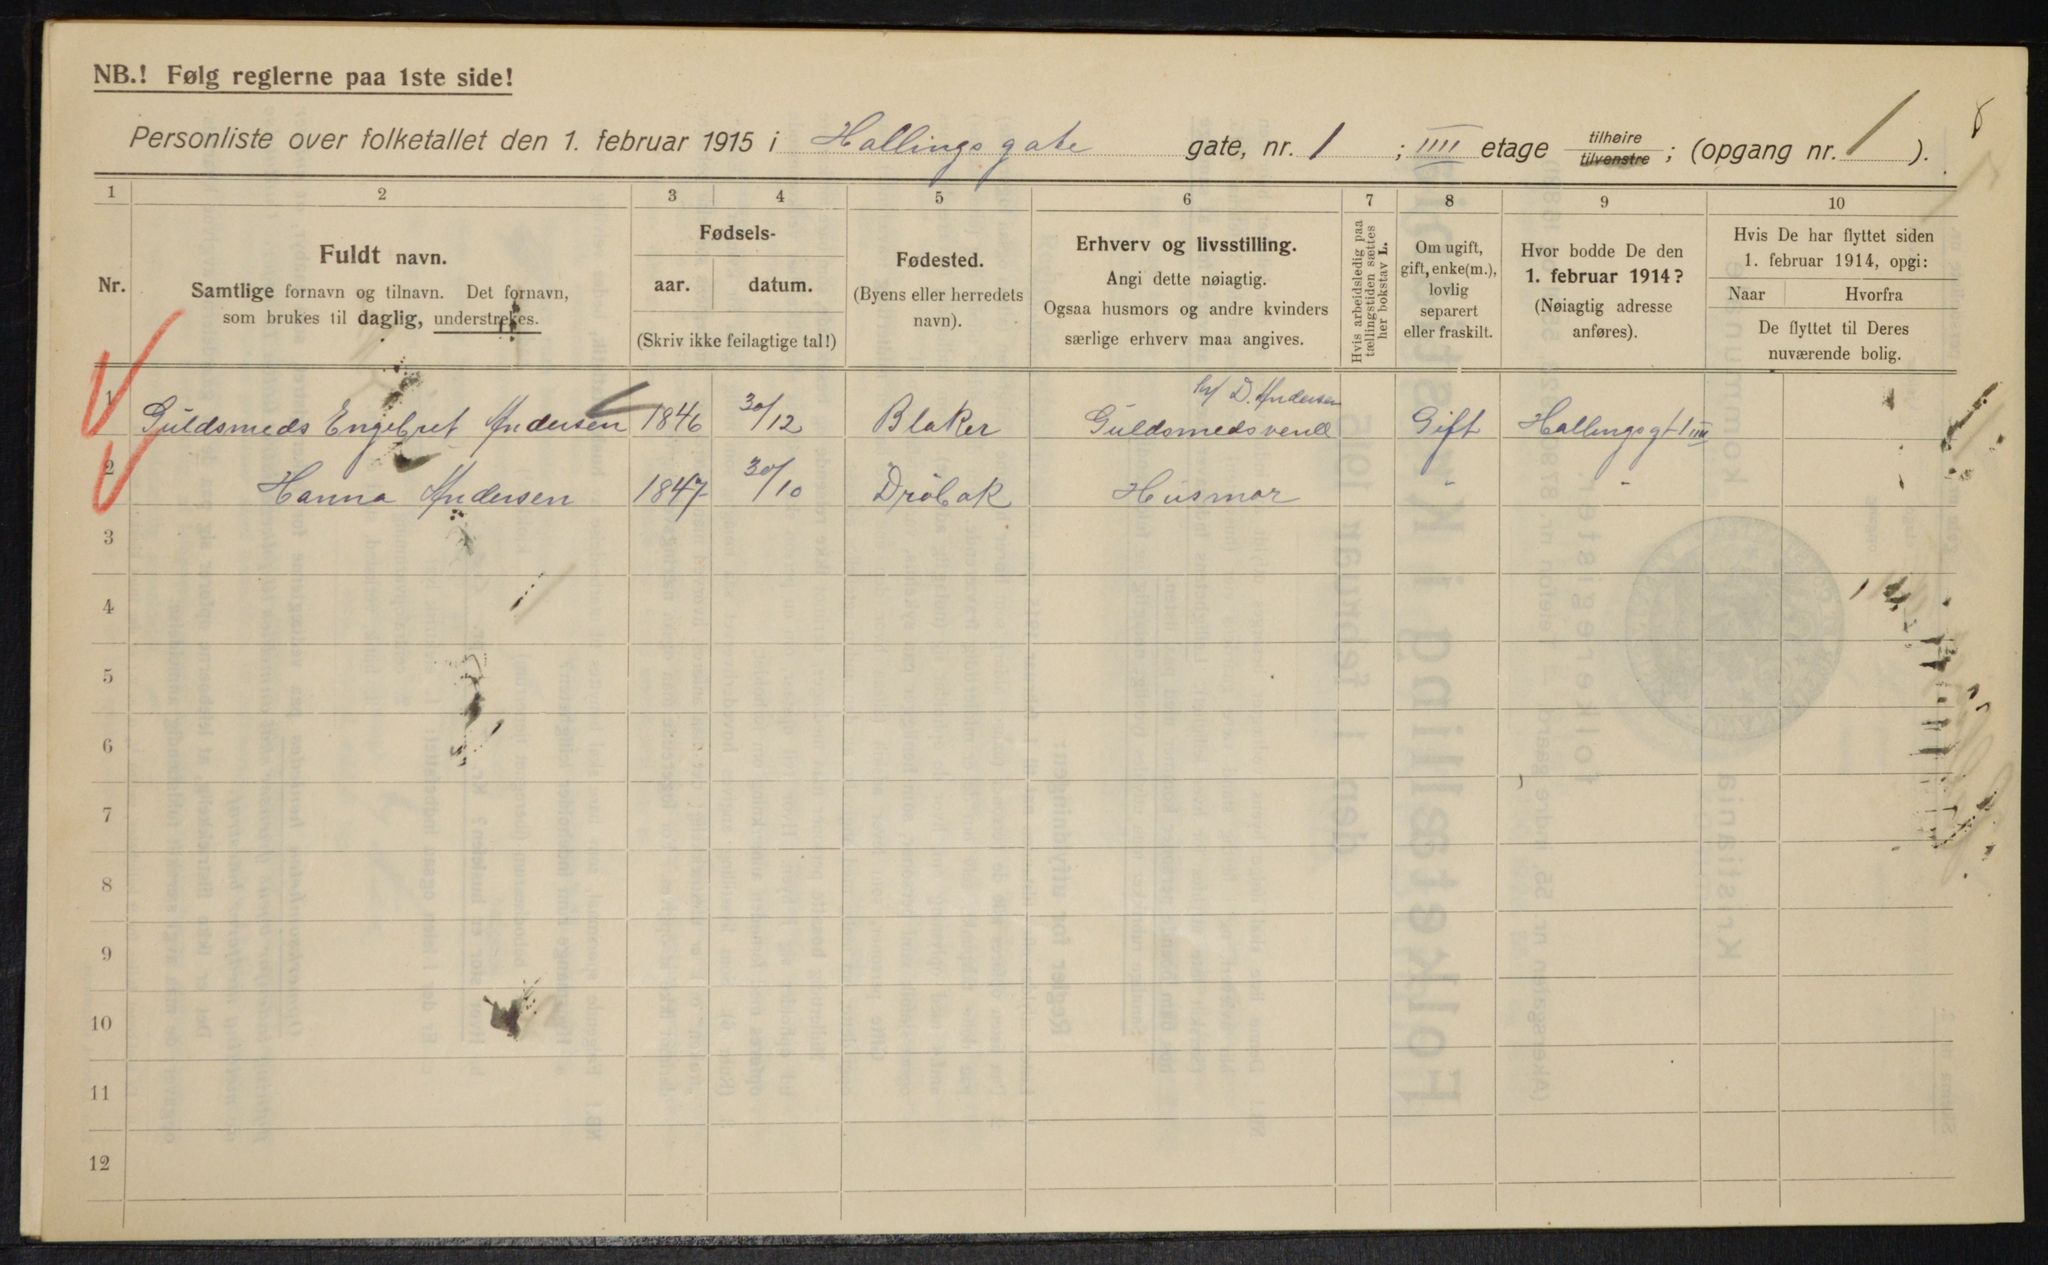 NB.! Følg reglerne paa 1ste side!
8
Personliste over folketallet den 1. februar 1915 i Hallings gate gate, nr. 1 ; IIII etage tilhøire tilvenstre ; (opgang nr. 1 ).
1 2 3 4 5 6 7 8 9 10
Nr.
Fuldt navn.
Samtlige fornavn og tilnavn. Det fornavn,
som brukes til daglig, understrekes.
Fødsels-
aar. datum.
(Skriv ikke feilagtige tal!)
Fødested.
(Byens eller herredets
navn).
Erhverv og livsstilling.
Angi dette nøiagtig.
Ogsaa husmors og andre kvinders
særlige erhverv maa angives.
Hvis arbeidsledig paa
tællingstiden sættes
her bokstav L.
Om ugift,
gift, enke(m.),
lovlig
separert
eller fraskilt.
Hvor bodde De den
1. februar 1914?
(Nøiagtig adresse
anføres).
Hvis De har flyttet siden
1. februar 1914, opgi:
Naar Hvorfra
De flyttet til Deres
nuværende bolig.
D. Andersen
1 Guldsmeds Engebret Andersen 1846 30/12 Blaker Guldsmedsvend Gift Hallingsgt 1 IIII
2 Hanna Andersen 1847 30/10 Drøbak Husmor " "
3
4
5
6
7
8
9
10
11
12